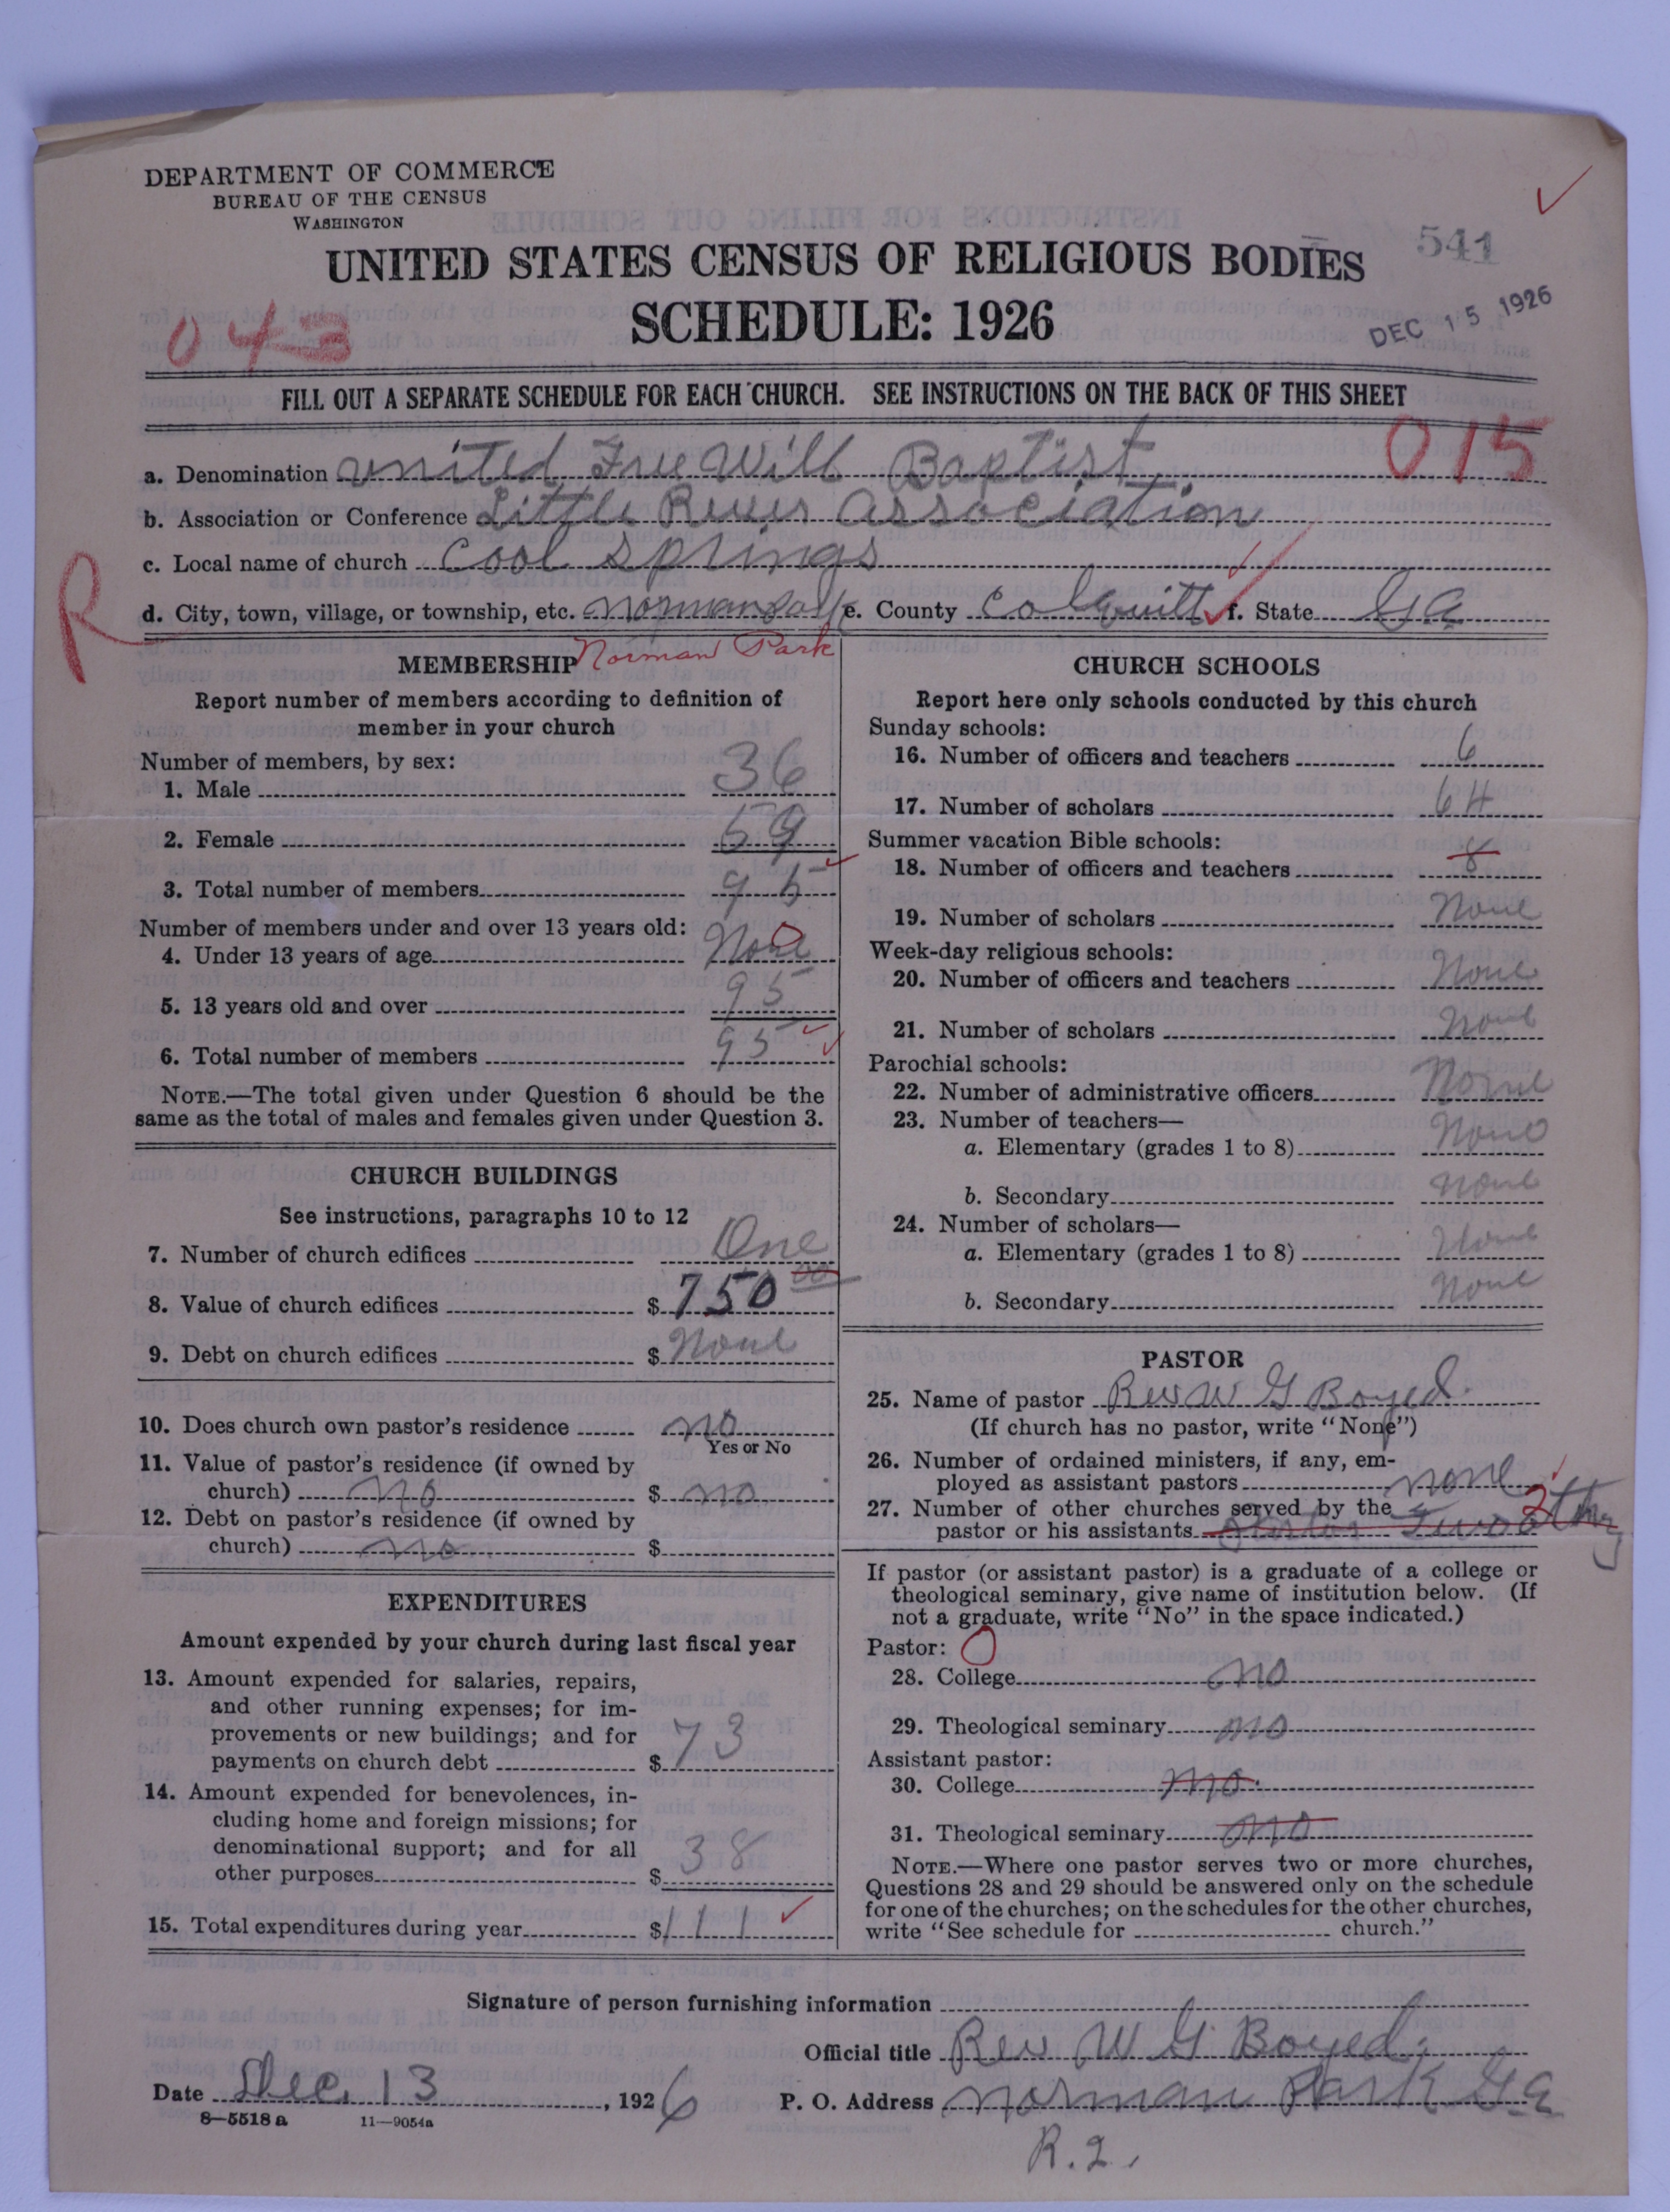 DEPARTMENT OF COMMERCE
BUREAU OF THE CENSUS
WASHINGTON
UNITED STATES CENSUS OF RELIGIOUS BODIES
541
SCHEDULE: 1926
DEC 15 1926
043
FILL OUT A SEPARATE SCHEDULE FOR EACH CHURCH. SEE INSTRUCTIONS ON THE BACK OF THIS SHEET
015
a. Denomination United Free Will Baptist
b. Association or Conference Little River Association
c. Local name of church Cool Springs
R
d. City, town, village, or township, etc. e. County Colquitt f. State Ga
Norman Park
MEMBERSHIP
Report number of members according to definition of
member in your church
Number of members, by sex:
1. Male 36
2. Female 59
3. Total number of members 95
Number of members under and over 13 years old:
4. Under 13 years of age None 0
5. 13 years old and over 95
6. Total number of members 95
NOTE.—The total given under Question 6 should be the
same as the total of males and females given under Question 3.
CHURCH BUILDINGS
See instructions, paragraphs 10 to 12
7. Number of church edifices One
8. Value of church edifices $ 750 00
9. Debt on church edifices $ None
10. Does church own pastor's residence no
Yes or No
11. Value of pastor's residence (if owned by
church) no $ no
12. Debt on pastor's residence (if owned by
church) no $
EXPENDITURES
Amount expended by your church during last fiscal year
13. Amount expended for salaries, repairs,
and other running expenses; for im-
provements or new buildings; and for
payments on church debt $ 73
14. Amount expended for benevolences, in-
cluding home and foreign missions; for
denominational support; and for all
other purposes $ 38
15. Total expenditures during year $ 111
CHURCH SCHOOLS
Report here only schools conducted by this church
Sunday schools:
16. Number of officers and teachers 6
17. Number of scholars 64
Summer vacation Bible schools:
18. Number of officers and teachers 8
19. Number of scholars None
Week-day religious schools:
20. Number of officers and teachers None
21. Number of scholars None
Parochial schools:
22. Number of administrative officers None
23. Number of teachers—
a. Elementary (grades 1 to 8) None
b. Secondary None
24. Number of scholars—
a. Elementary (grades 1 to 8) None
b. Secondary None
PASTOR
25. Name of pastor Rev W G Boyed
(If church has no pastor, write "None")
26. Number of ordained ministers, if any, em-
ployed as assistant pastors none
27. Number of other churches served by the 2
pastor or his assistants Two
If pastor (or assistant pastor) is a graduate of a college or
theological seminary, give name of institution below. (If
not a graduate, write "No" in the space indicated.)
Pastor: 0
28. College no
29. Theological seminary no
Assistant pastor:
30. College no
31. Theological seminary no
NOTE.—Where one pastor serves two or more churches,
Questions 28 and 29 should be answered only on the schedule
for one of the churches; on the schedules for the other churches,
write "See schedule for church."
Signature of person furnishing information
Official title Rev W G Boyed
Date Dec. 13, 1926 P. O. Address Norman Park Ga
8—5518 a 11—9054a
R. 2.